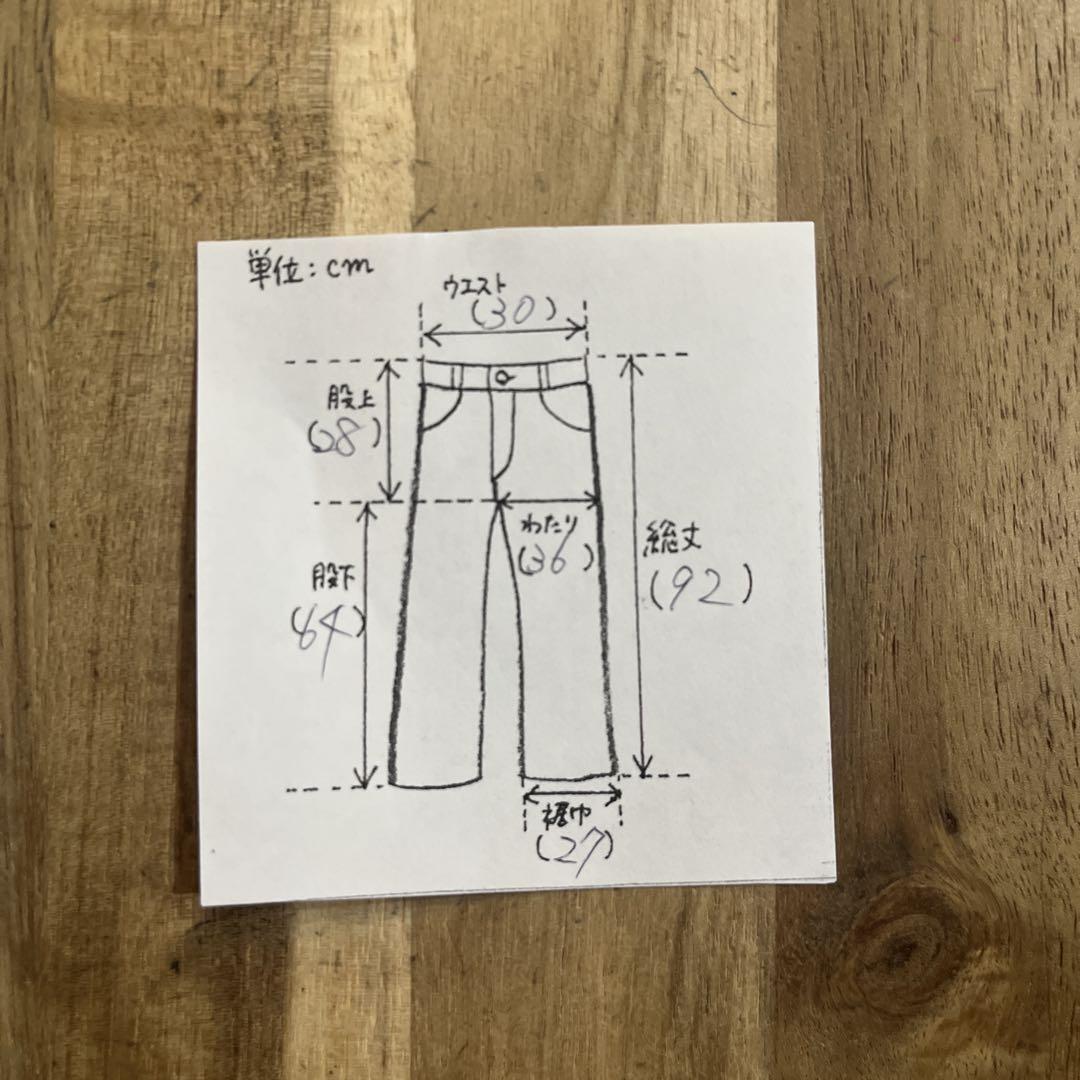 単位:cm
ウエスト
(30)
股上
(28)
わたり
(36)
総丈
(92)
股下
(64)
裾巾
(27)